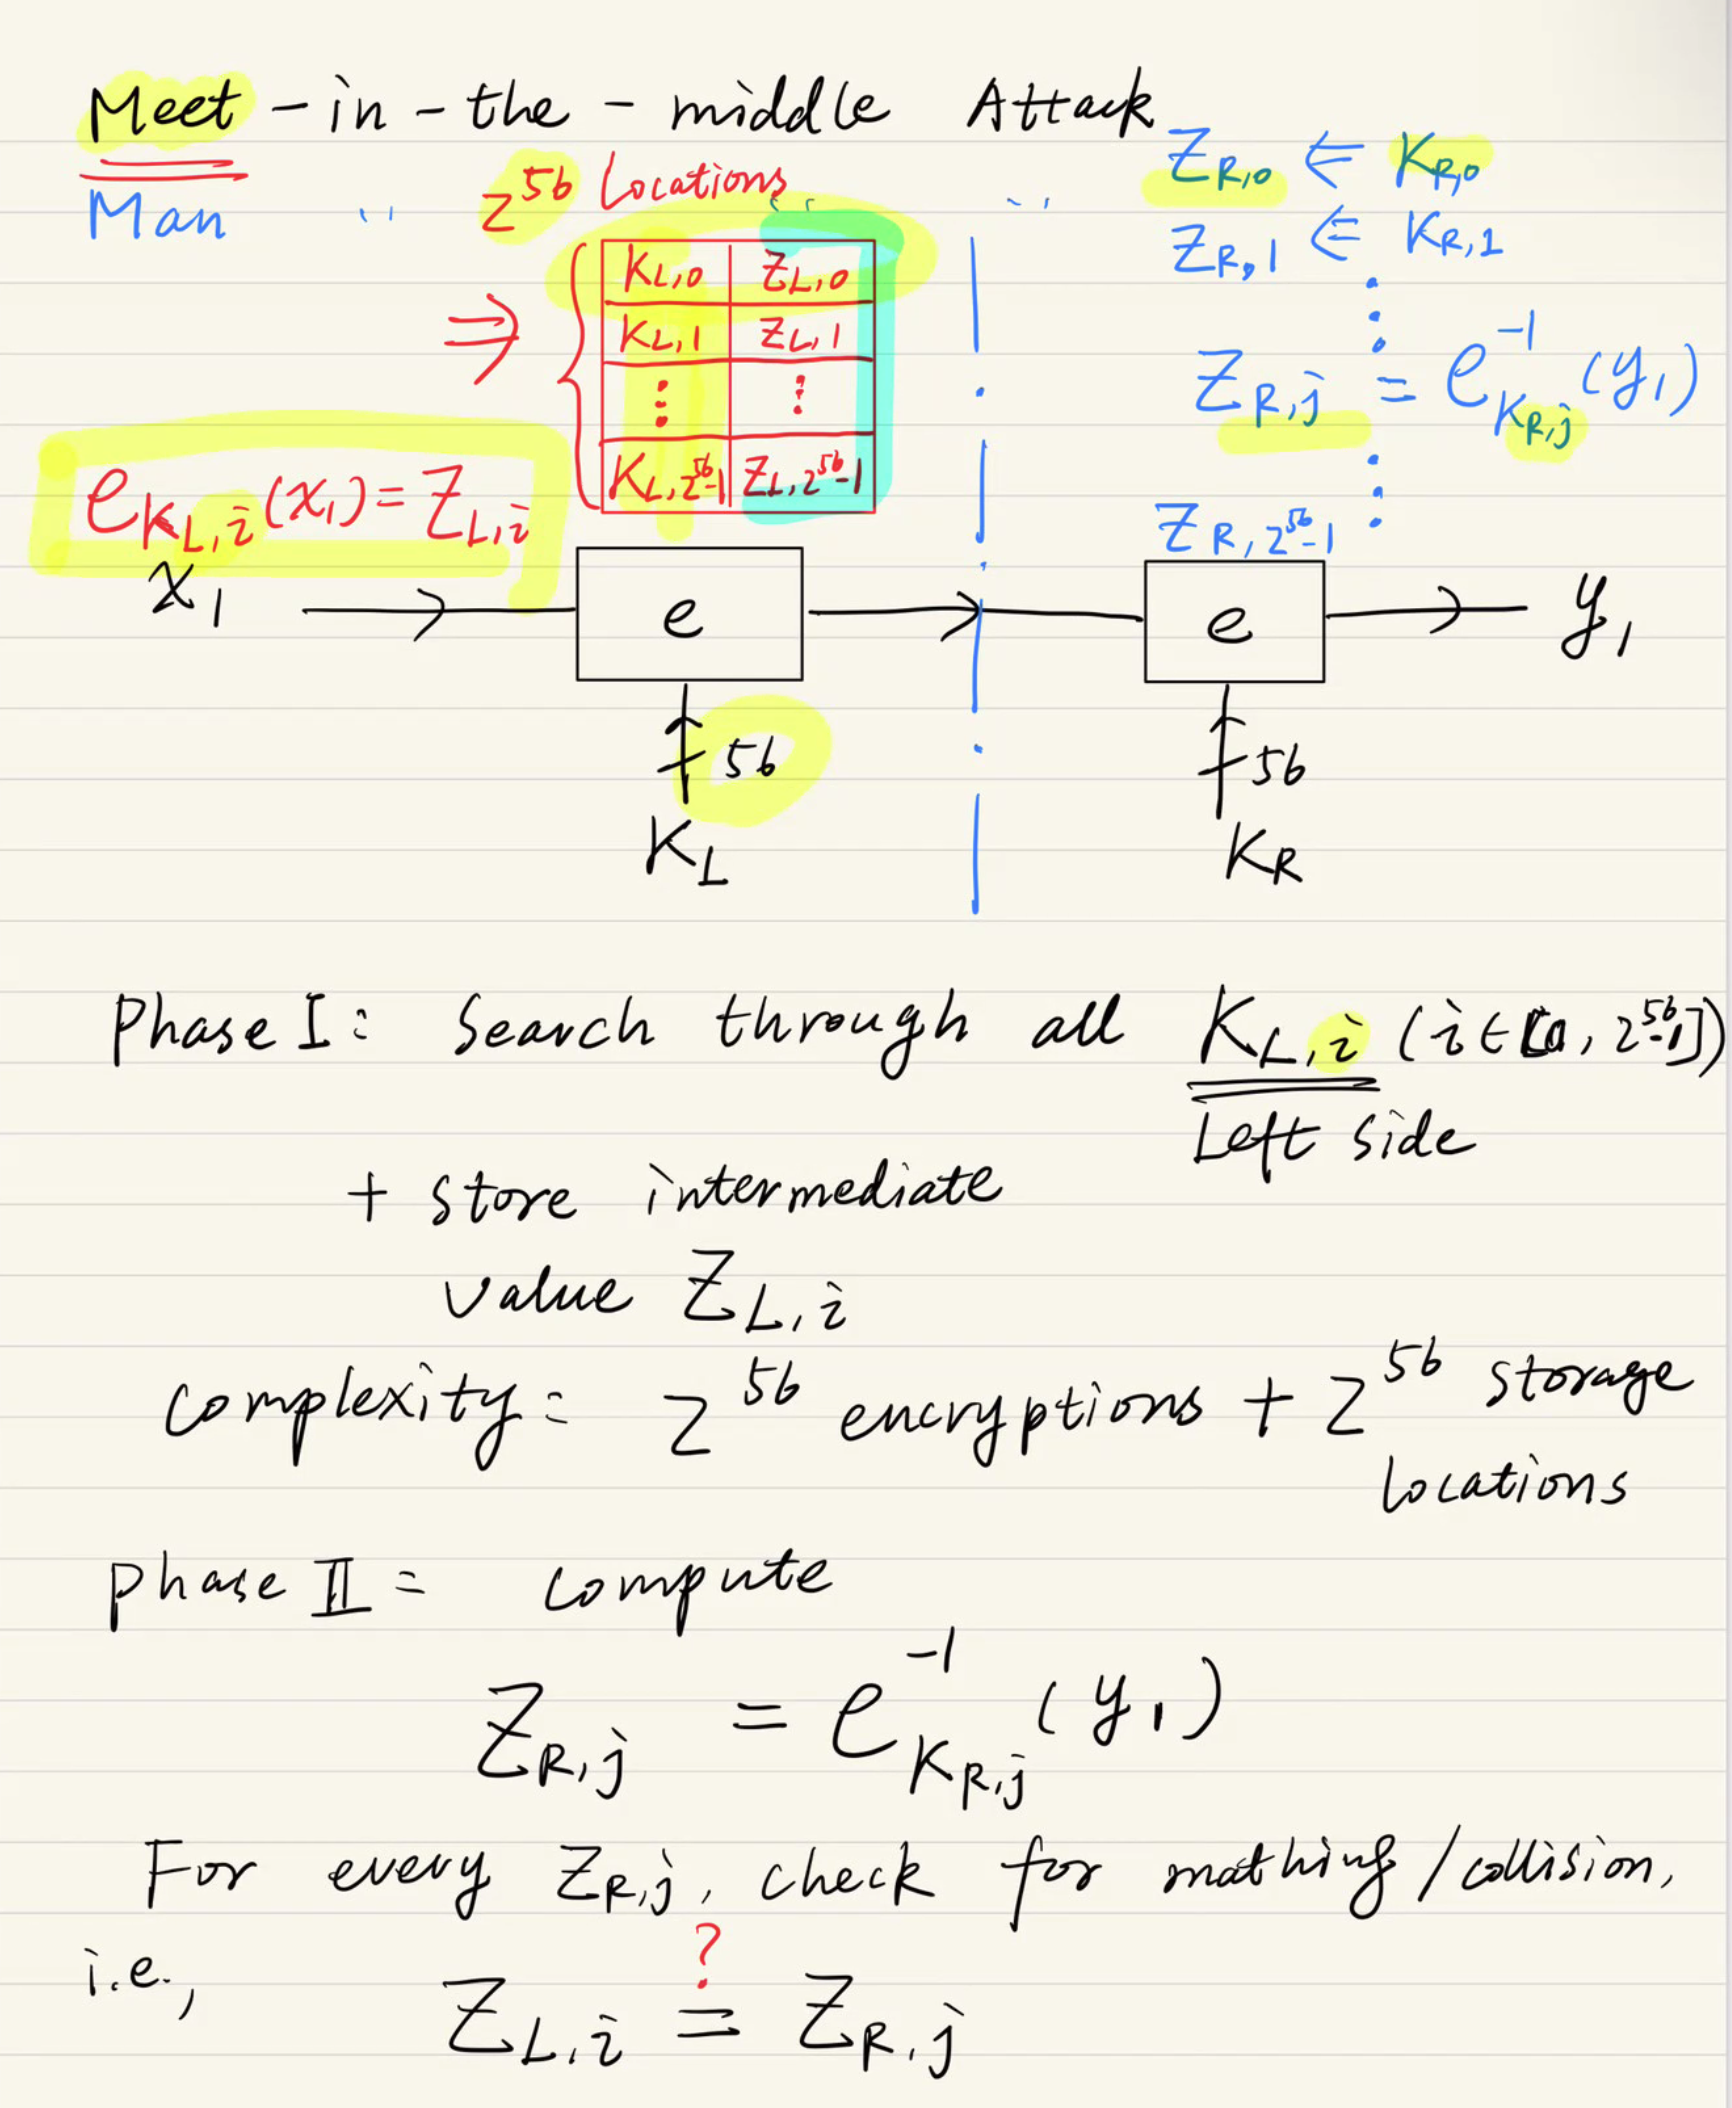 Meet-in-the-middle Attack
Man " " "
2^56 locations
K_L,0 Z_L,0
K_L,1 Z_L,1
⋮ ⋮
K_L,2^56-1 Z_L,2^56-1
⇒
Z_R,0 ⇐ K_R,0
Z_R,1 ⇐ K_R,1
⋮
Z_R,j = e^-1_K_R,j (y_1)
⋮
Z_R,2^56-1
e_K_L,i (x_1) = Z_L,i
x_1 → e → e → y_1
56 56
K_L K_R
Phase I: Search through all K_L,i (i∈[0, 2^56-1])
Left side
+ store intermediate
value Z_L,i
Complexity: 2^56 encryptions + 2^56 storage
locations
Phase II: Compute
Z_R,j = e^-1_K_R,j (y_1)
For every Z_R,j, check for mathing/collision,
i.e.,
?
Z_L,i = Z_R,j